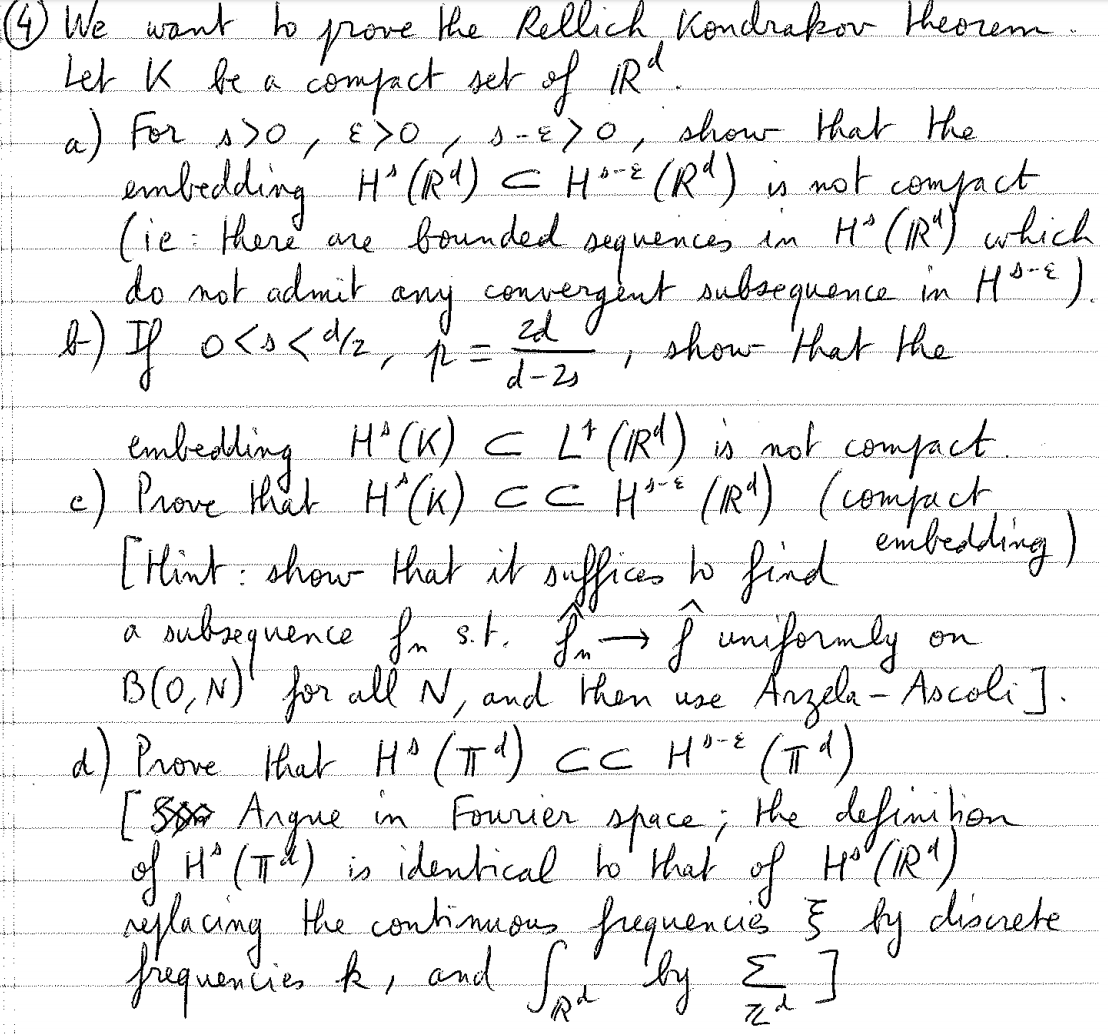 ④ We want to prove the Rellich Kondrakov theorem.
Let K be a compact set of ℝᵈ.
a) For s>0, ε>0, s-ε>0, show that the
embedding Hˢ(ℝᵈ) ⊂ Hˢ⁻ᵋ(ℝᵈ) is not compact
(ie: there are bounded sequences in Hˢ(ℝᵈ) which
do not admit any convergent subsequence in Hˢ⁻ᵋ).
b) If 0<s<d/2, p = 2d/(d-2s), show that the
embedding Hˢ(K) ⊂ Lᵖ(ℝᵈ) is not compact.
c) Prove that Hˢ(K) ⊂⊂ Hˢ⁻ᵋ(ℝᵈ) (compact
embedding)
[Hint: show that it suffices to find
a subsequence fₙ s.t. f̂ₙ → f̂ uniformly on
B(0,N) for all N, and then use Arzela-Ascoli].
d) Prove that Hˢ(𝕋ᵈ) ⊂⊂ Hˢ⁻ᵋ(𝕋ᵈ)
[Argue in Fourier space; the definition
of Hˢ(𝕋ᵈ) is identical to that of Hˢ(ℝᵈ)
replacing the continuous frequencies ξ by discrete
frequencies k, and ∫_ℝᵈ by Σ_ℤᵈ]